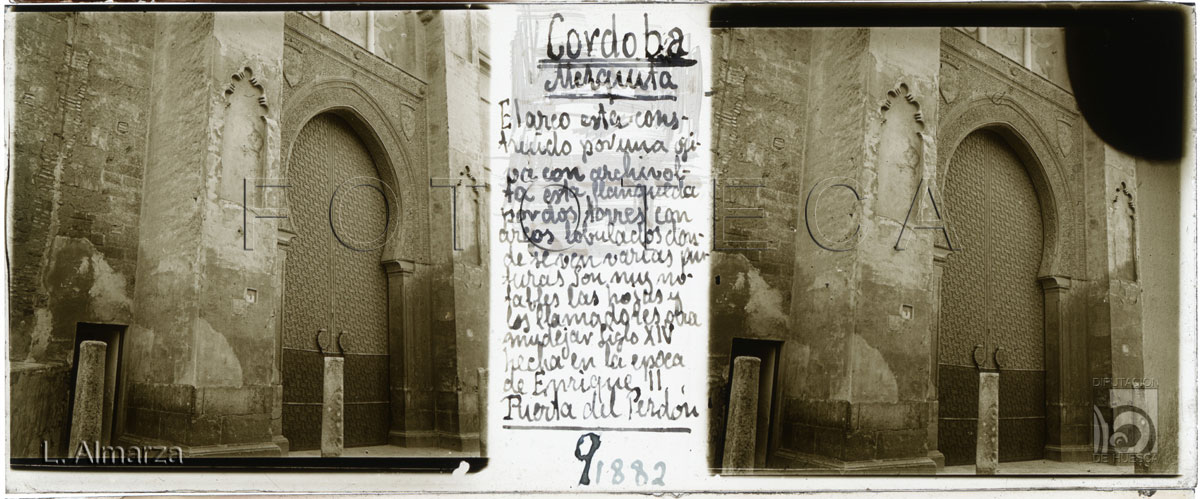 Cordoba
Mezquita
El arco está cons-
truido por una oji-
va con archivol-
ta está flanqueda
por dos torres con
arcos lobulados don-
de se ven varias pin-
turas Son muy no-
tables las hojas y
los llamadores obra
mudejar Siglo XIV
hecha en la epoca
de Enrique II
Puerta del Perdón
9 1882
FOTOTECA
L. Almarza
DIPUTACIÓN
DE HUESCA